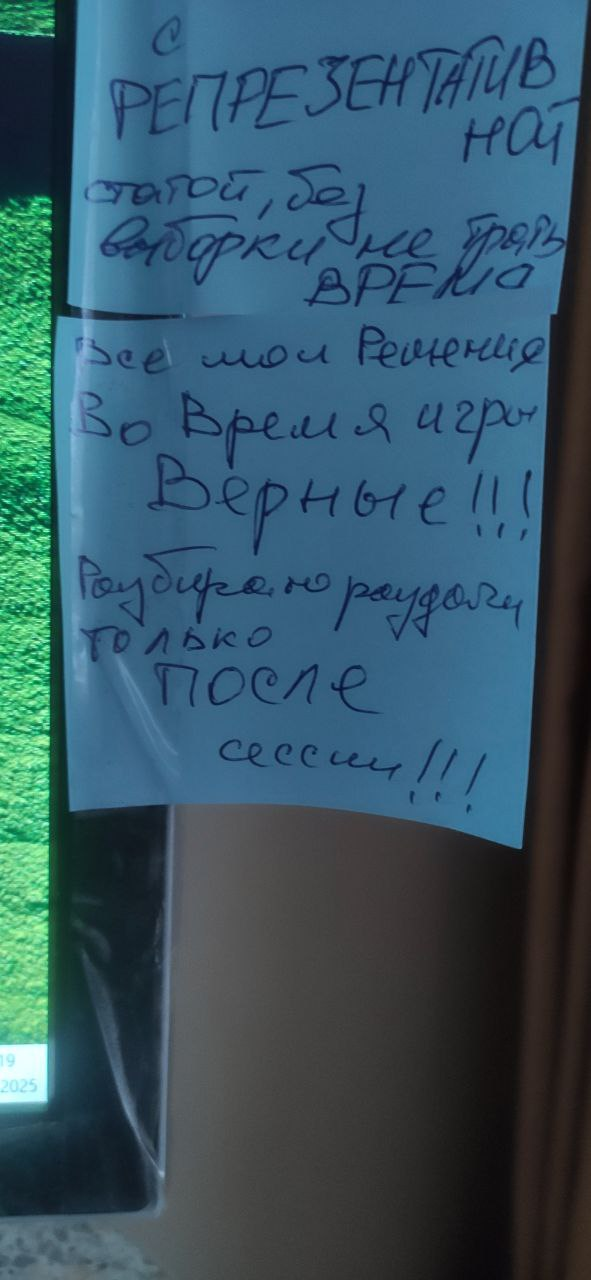 с
РЕПРЕЗЕНТАТИВ
НОЙ
статой, без
выборки не трать
ВРЕМЯ
Все мои Решения
Во Время игры
Верные!!!
Разбираю раздачи
только
после
сессии!!!
19
2025